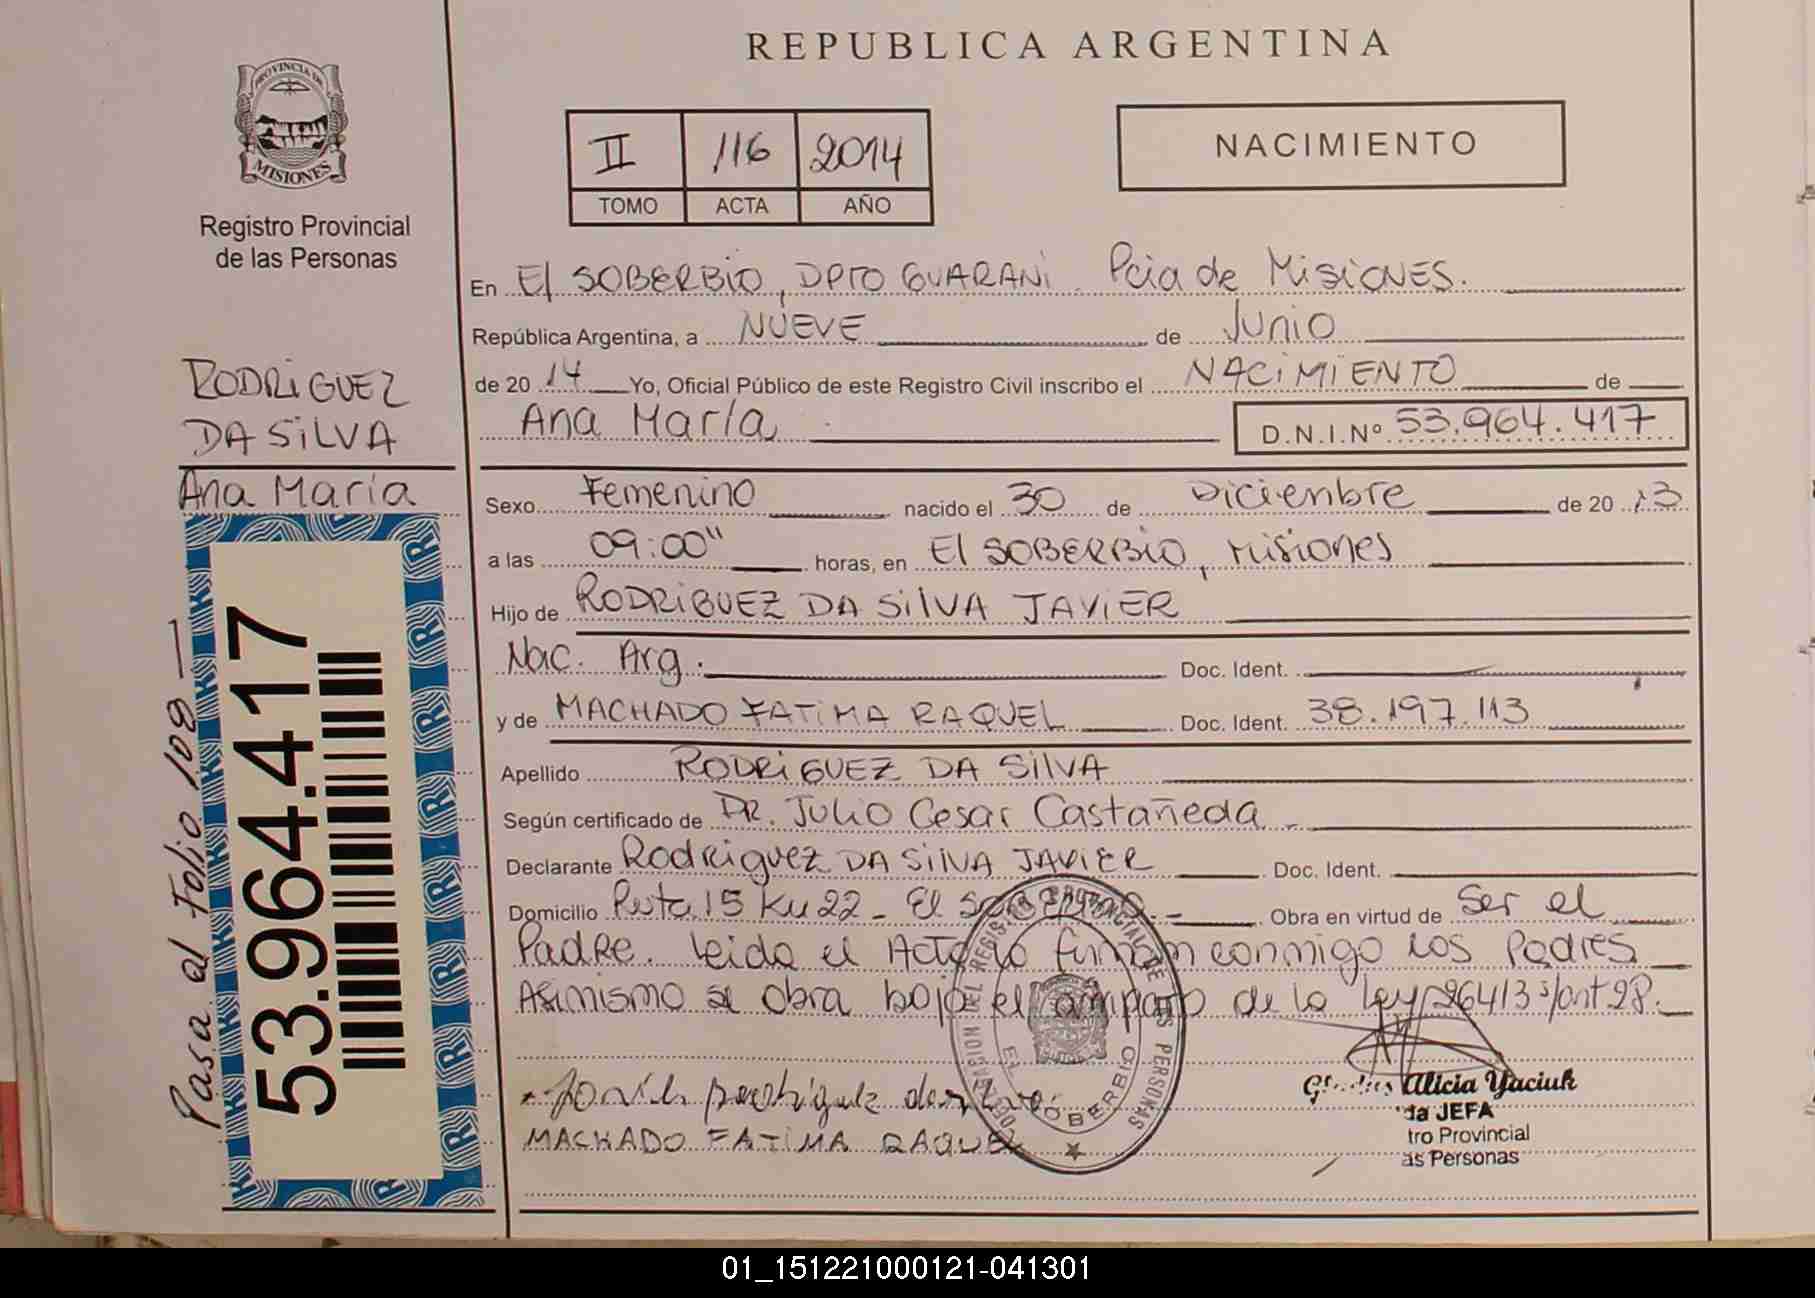 REPUBLICA ARGENTINA
PROVINCIA DE
MISIONES
Registro Provincial
de las Personas
II 116 2014
TOMO ACTA AÑO
NACIMIENTO
En El SOBERBIO, DPTO GUARANI. Pcia de MISIONES.
República Argentina, a NUEVE de Junio
de 2014 Yo, Oficial Público de este Registro Civil inscribo el NACIMIENTO de
Ana María D.N.I.Nº 53.964.417
RODRIGUEZ
DA SILVA
Ana María
Sexo Femenino nacido el 30 de Diciembre de 2013
a las 09:00" horas, en El SOBERBIO, Misiones
Hijo de RODRIGUEZ DA SILVA JAVIER
Nac. Arg. Doc. Ident.
y de MACHADO FATIMA RAQUEL Doc. Ident. 38.197.113
Apellido RODRIGUEZ DA SILVA
Según certificado de DR. Julio Cesar Castañeda
Declarante Rodriguez DA SILVA JAVIER Doc. Ident.
Domicilio Ruta 15 Km 22 - El Obra en virtud de Ser el
Padre. Leida el Acta lo firman conmigo los Padres
Asimismo se obra bajo el amparo de la Ley 26413 s/art 28.
MACHADO FATIMA RAQUEL
Alicia Yaciuk
da JEFA
tro Provincial
as Personas
REGISTRO PROVINCIAL DE LAS PERSONAS
EL SOBERBIO
Pasa al Folio 108
53.964.417
01_151221000121-041301